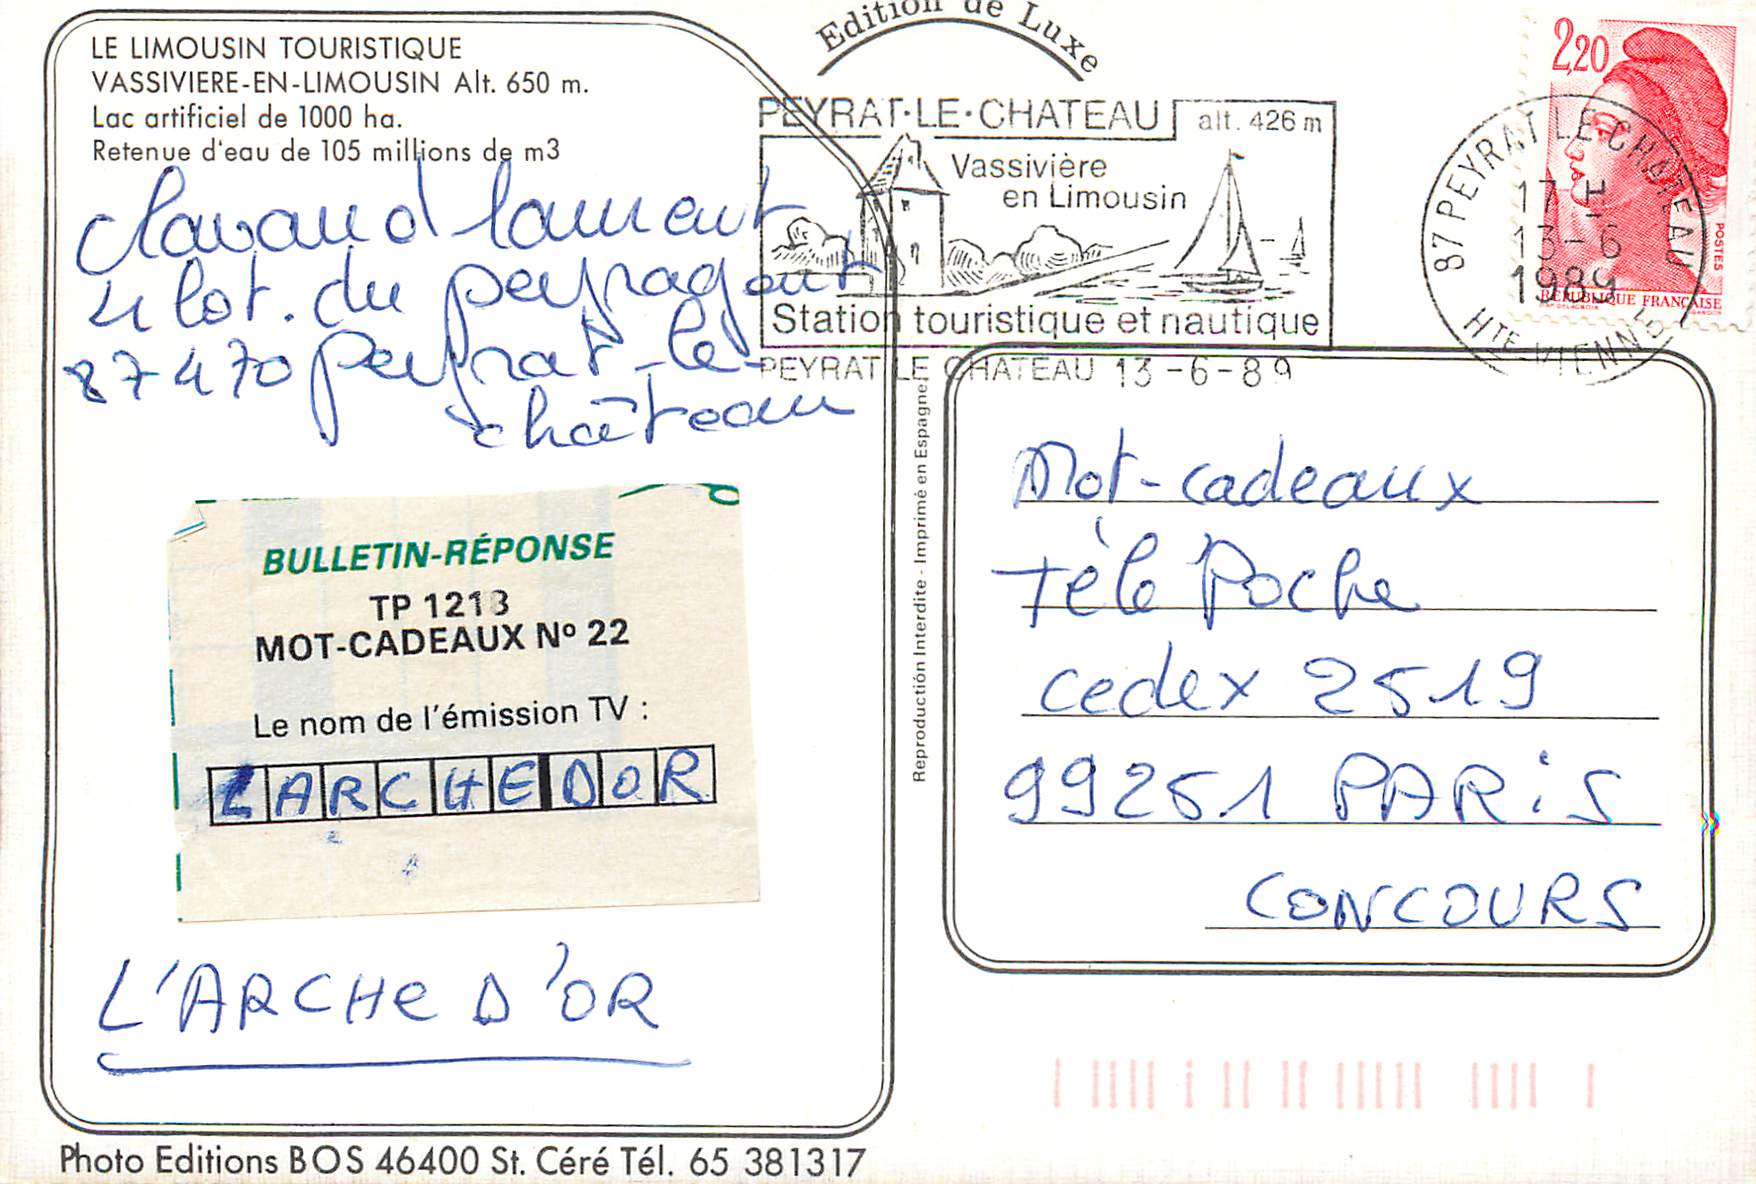 LE LIMOUSIN TOURISTIQUE
VASSIVIERE-EN-LIMOUSIN Alt. 650 m.
Lac artificiel de 1000 ha.
Retenue d'eau de 105 millions de m3
Clavaud laurent
4 lot. du peyragout
87470 peyrat-le-
château
BULLETIN-RÉPONSE
TP 1213
MOT-CADEAUX Nº 22
Le nom de l'émission TV :
LARCHEDOR
L'ARCHE D'OR
Photo Editions BOS 46400 St. Céré Tél. 65 381317
Edition de Luxe
PEYRAT·LE·CHATEAU alt. 426 m
Vassivière
en Limousin
Station touristique et nautique
PEYRAT LE CHATEAU 13-6-89
2,20
POSTES
RÉPUBLIQUE FRANÇAISE
87 PEYRAT LE CHATEAU
17 H
13-6
1989
HTE VIENNE
Reproduction Interdite - Imprimé en Espagne
Mot-cadeaux
Télé Poche
cedex 2519
99251 PARIS
CONCOURS